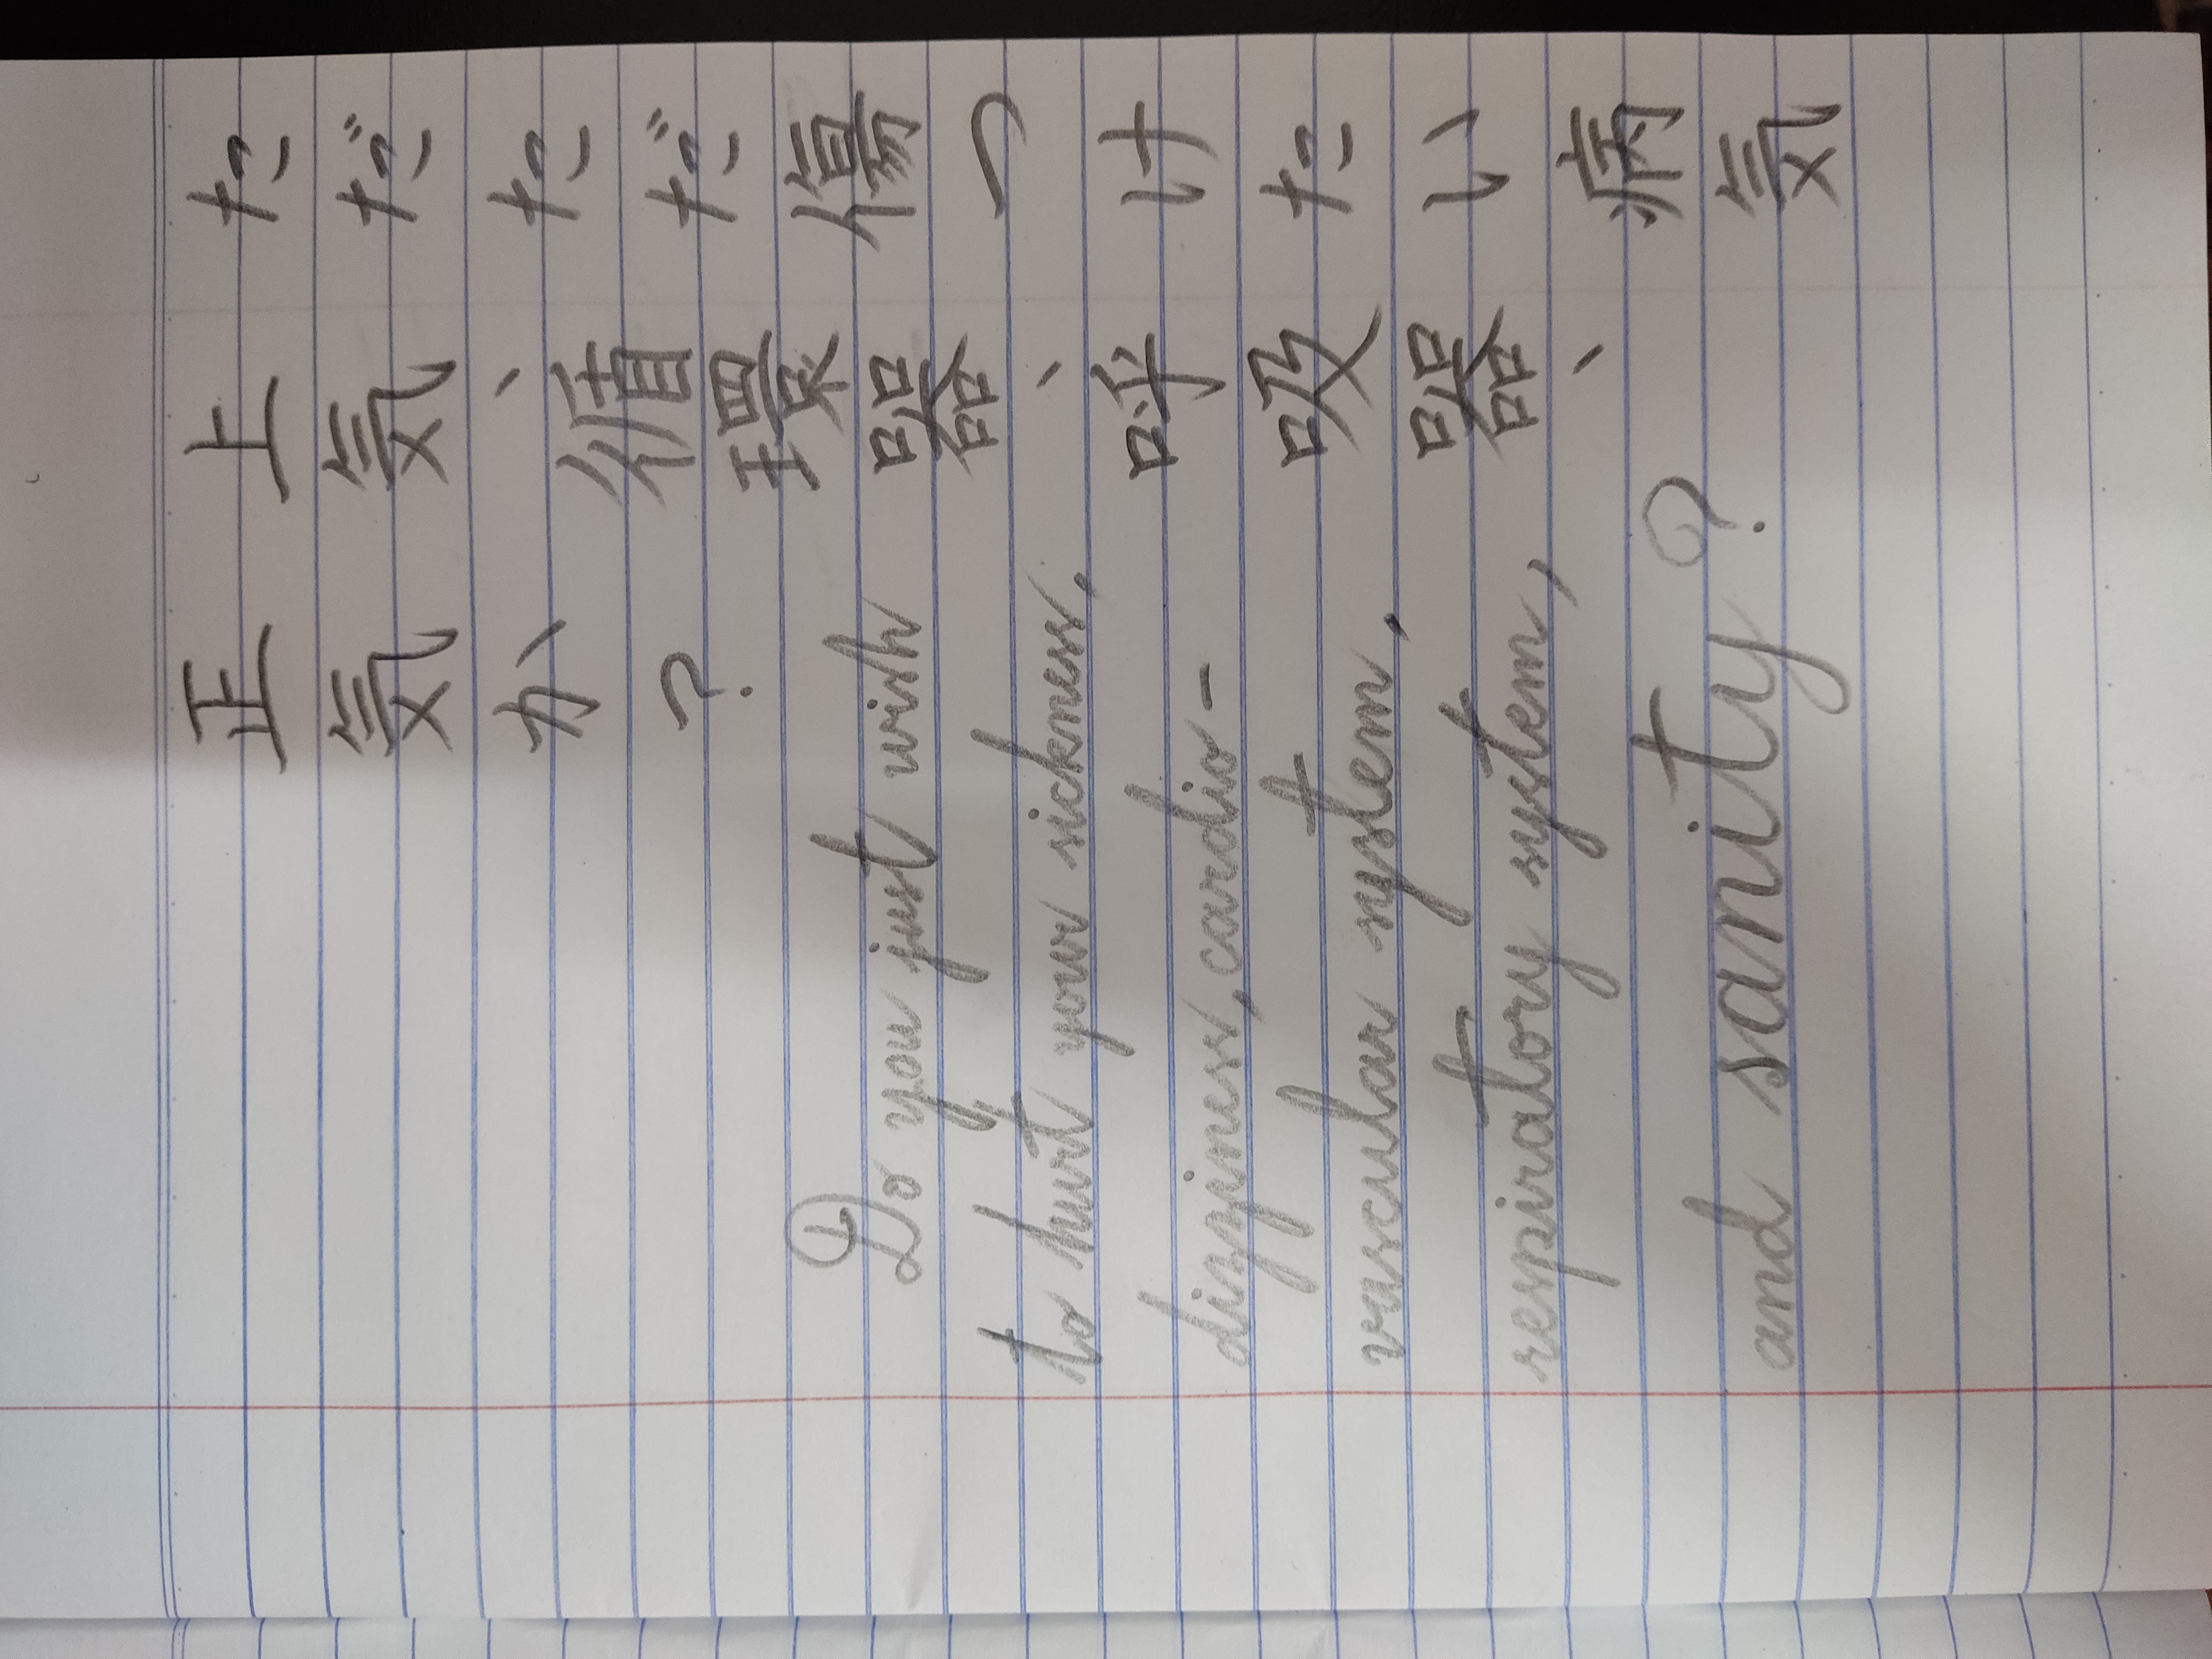 ただただ傷つけたい病気
上気、循環器、呼吸器、
正気か?
Do you just wish
to hurt your sickness,
dizziness, cardio-
vascular system,
respiratory system,
and sanity?